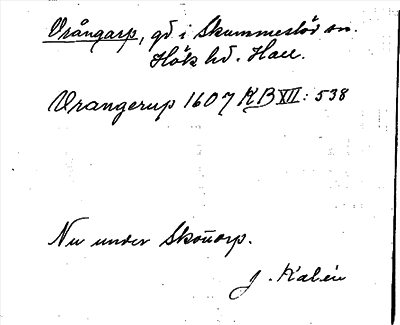 Vrångarp, gd. i Skummeslöv sn.
Hök hd. Hall.
Vrangerup 1607 KB XII: 538
Nu under Skottorp.
J. Kalén